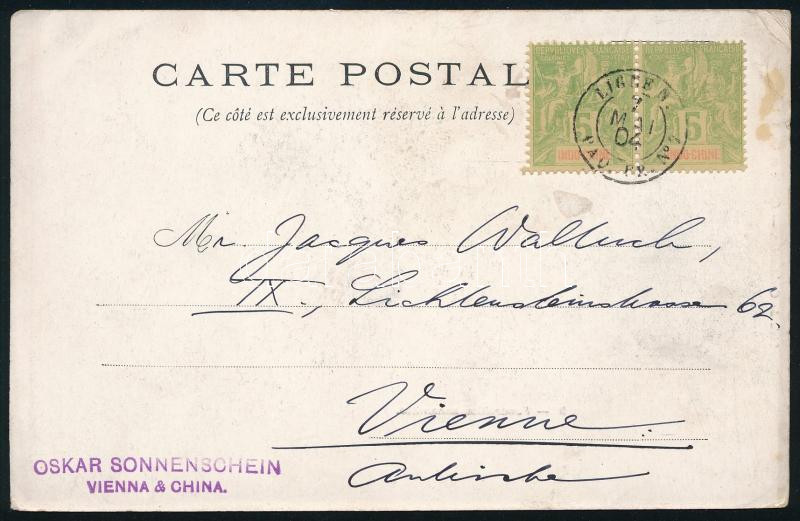 CARTE POSTALE
(Ce côté est exclusivement réservé à l'adresse)
5 5
INDO-CHINE INDO-CHINE
LIGNE N
7
MAI
02
PAQ. FR. Nº
Mr. Jacques Walluch,
IX., Lichtensteinstrasse 62.
Vienne.
Autriche
OSKAR SONNENSCHEIN
VIENNA & CHINA.